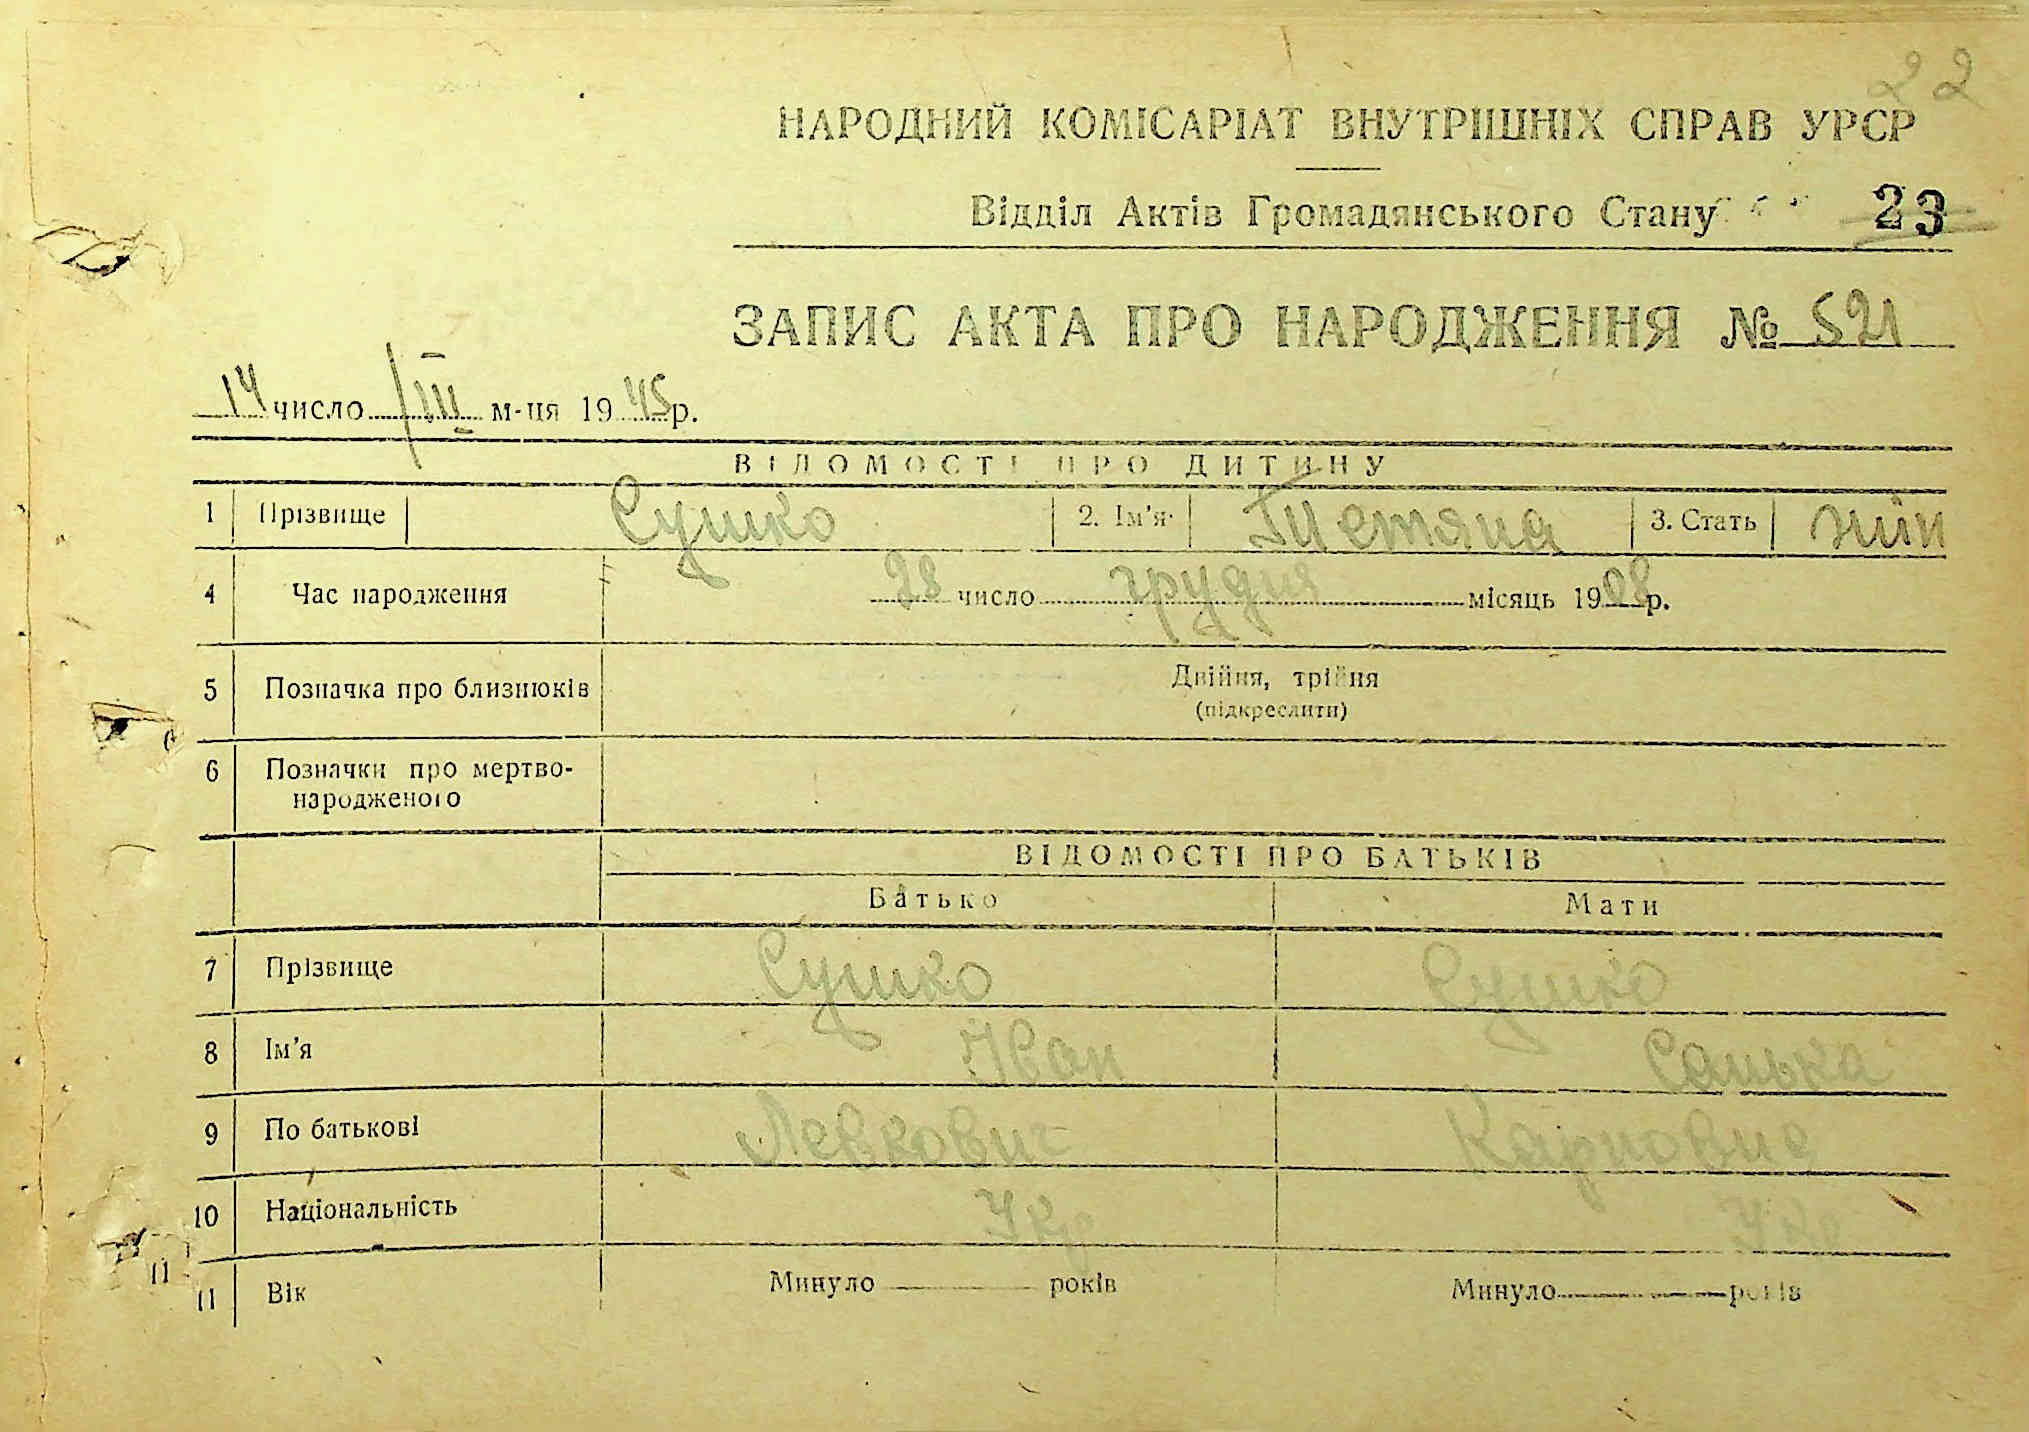 22
НАРОДНИЙ КОМІСАРІАТ ВНУТРІШНІХ СПРАВ УРСР
Відділ Актів Громадянського Стану 23
ЗАПИС АКТА ПРО НАРОДЖЕННЯ № 521
14 число III м-ця 1945 р.
ВІДОМОСТІ ПРО ДИТИНУ
1 Прізвище Сушко 2. Ім'я Тетяна 3. Стать жін
4 Час народження 28 число грудня місяць 1908 р.
5 Позначка про близнюків Двійня, трійня
(підкреслити)
6 Позначки про мертво-
народженого
ВІДОМОСТІ ПРО БАТЬКІВ
Батько Мати
7 Прізвище Сушко Сушко
8 Ім'я Іван Санька
9 По батькові Левкович Карповна
10 Національність Укр Укр
11 Вік Минуло років Минуло років
11